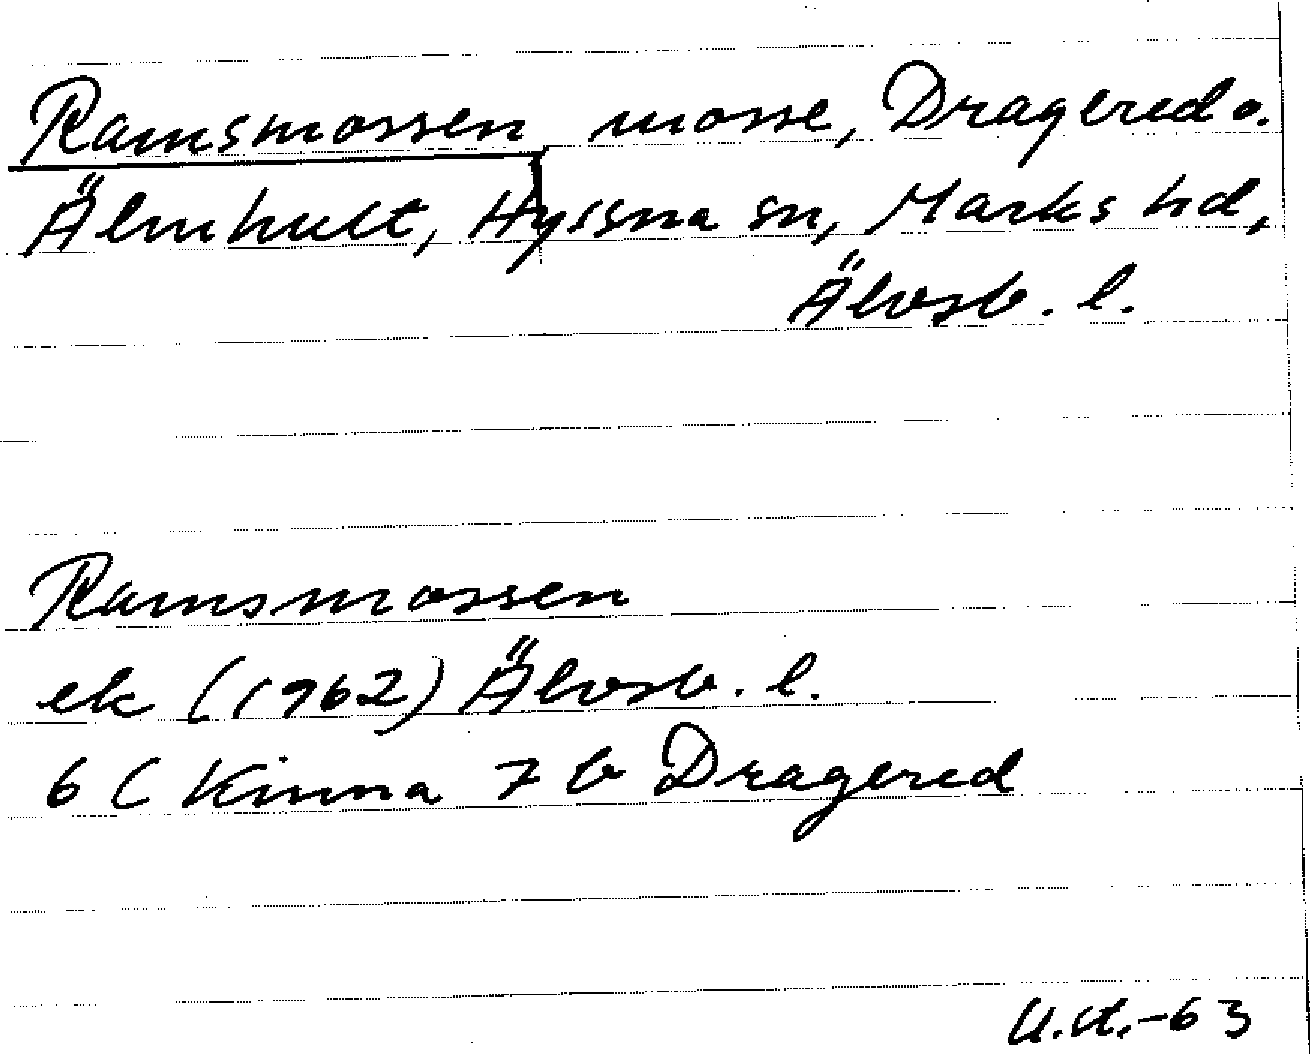 Ramsmossen mosse, Dragered o.
Älmhult, Hyssna sn, Marks hd,
Älvsb. l.
Ramsmossen
ek (1962) Älvsb. l.
6 C Kinna 7 b Dragered
-63